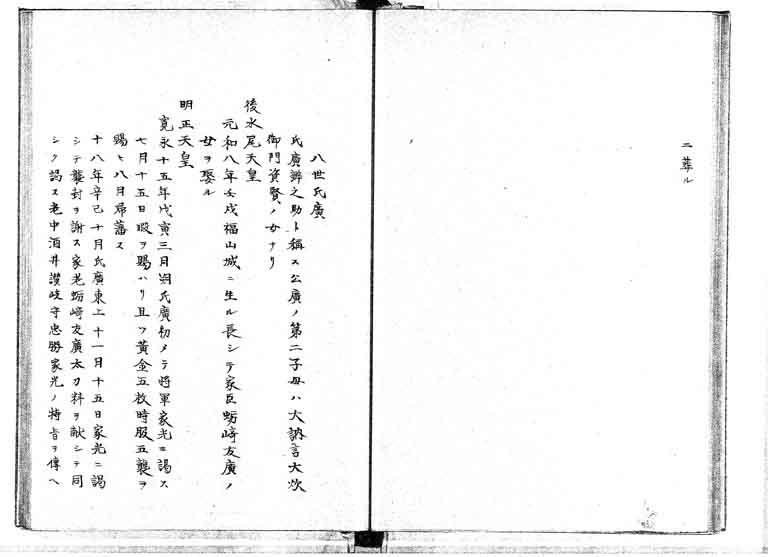 ニ葬ル
八世氏廣
氏廣辨之助ト稱ス公廣ノ第二子母ハ大納言大炊
御門資賢ノ女ナリ
後水尾天皇
元和八年壬戌福山城ニ生ル長シテ家臣蠣崎友廣ノ
女ヲ娶ル
明正天皇
寛永十五年戊寅三月朔氏廣初メテ將軍家光ニ謁ス
七月十五日暇ヲ賜ハリ且ツ黄金五枚時服五襲ヲ
賜ヒ八月帰藩ス
十八年辛巳十月氏廣東上十一月十五日家光ニ謁
シテ襲封ヲ謝ス家老蠣崎友廣太刀料ヲ獻シテ同
シク謁ス老中酒井讃岐守忠勝家光ノ特旨ヲ傳ヘ